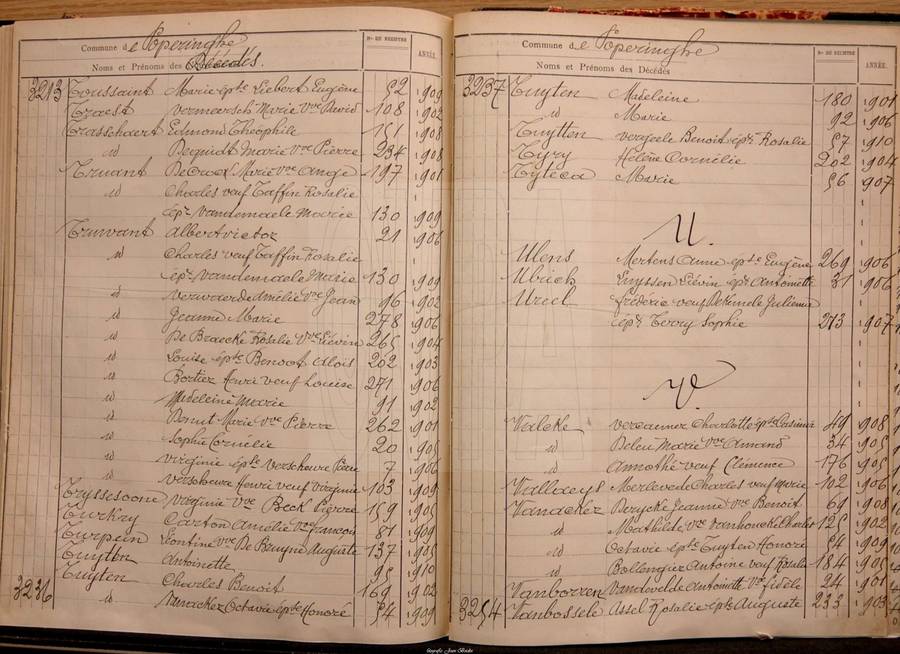 Commune de Poperinghe
Nos DU REGISTRE
ANNÉE
Noms et Prénoms des Décédés.
3213 Toussaint Marie épse Liebert Eugène 52 1909
Traest Vermeersch Marie Vve David 108 1902
Trasschaert Edmond Théophile 151 1908
id Dequidt Marie Vve Pierre 234 1908
Truant Decrock Marie Vve Ange 197 1901
id Charles veuf Taffin Rosalie
épx Vandemaele Marie 130 1909
Truwant Albert victor 21 1906
id Charles veuf Taffin Rosalie
épx Vandemaele Marie 130 1909
id Amélie Vve Jean 96 1902
id Jeanne Marie 278 1906
id De Braecke Rosalie Vve Liévin 265 1904
id Louise épse Benoot Aloïs 202 1903
id Bortier Henri veuf Louise 271 1906
id Madeleine Marie 91 1902
id Benut Marie Vve Pierre 262 1901
id Sophie Cornélie 20 1905
id Virginie épse Verscheure 7 1906
id Verscheure Henri veuf Virginie 103 1909
Tryssesoone Virginie Vve Beck Pierre 159 1905
Turkry Carton Amélie Vve François 81 1909
Turpein Léontine Vve De Bruyne Auguste 137 1905
Tuytten Antoinette 95 1910
Tuyten Charles Benoit 169 1902
3236 id Vanackez Octavie épse Honoré 54 1909
Commune de Poperinghe
Nos DU REGISTRE
ANNÉE.
Noms et Prénoms des Décédés
3237 Tuyten Madeleine 180 1901
id Marie 92 1906
Tuytten Vergeele Benoit épx Rosalie 57 1910
Tyry Hélène Cornélie 202 1904
Tytéca Marie 56 1907
U.
Ulens Mertens Anne épse Eugène 269 1906
Ubrich Luyssen Liévin épx Antoinette 31 1906
Ureel Fréderic veuf Julienne
épx Terry Sophie 213 1907
V.
Valcke Vercaemer Charlotte épse 49 1908
id Deleu Marie Vve Amand 34 1905
id veuf Clémence 176 1905
Vallaeys Merlevede Charles veuf Marie 102 1906
Vanackez Derycke Jeanne Vve Benoit 69 1908
id Mathilde Vve Vanhoucke Charles 125 1902
id Octavie épse Tuyten Honoré 54 1909
id Bollengier Antoine veuf Rosalie 184 1905
Vanborren Vandevelde Antoinette Vve Fidèle 24 1901
3254 Vanbossele Assel Rosalie épse Auguste 233 1903